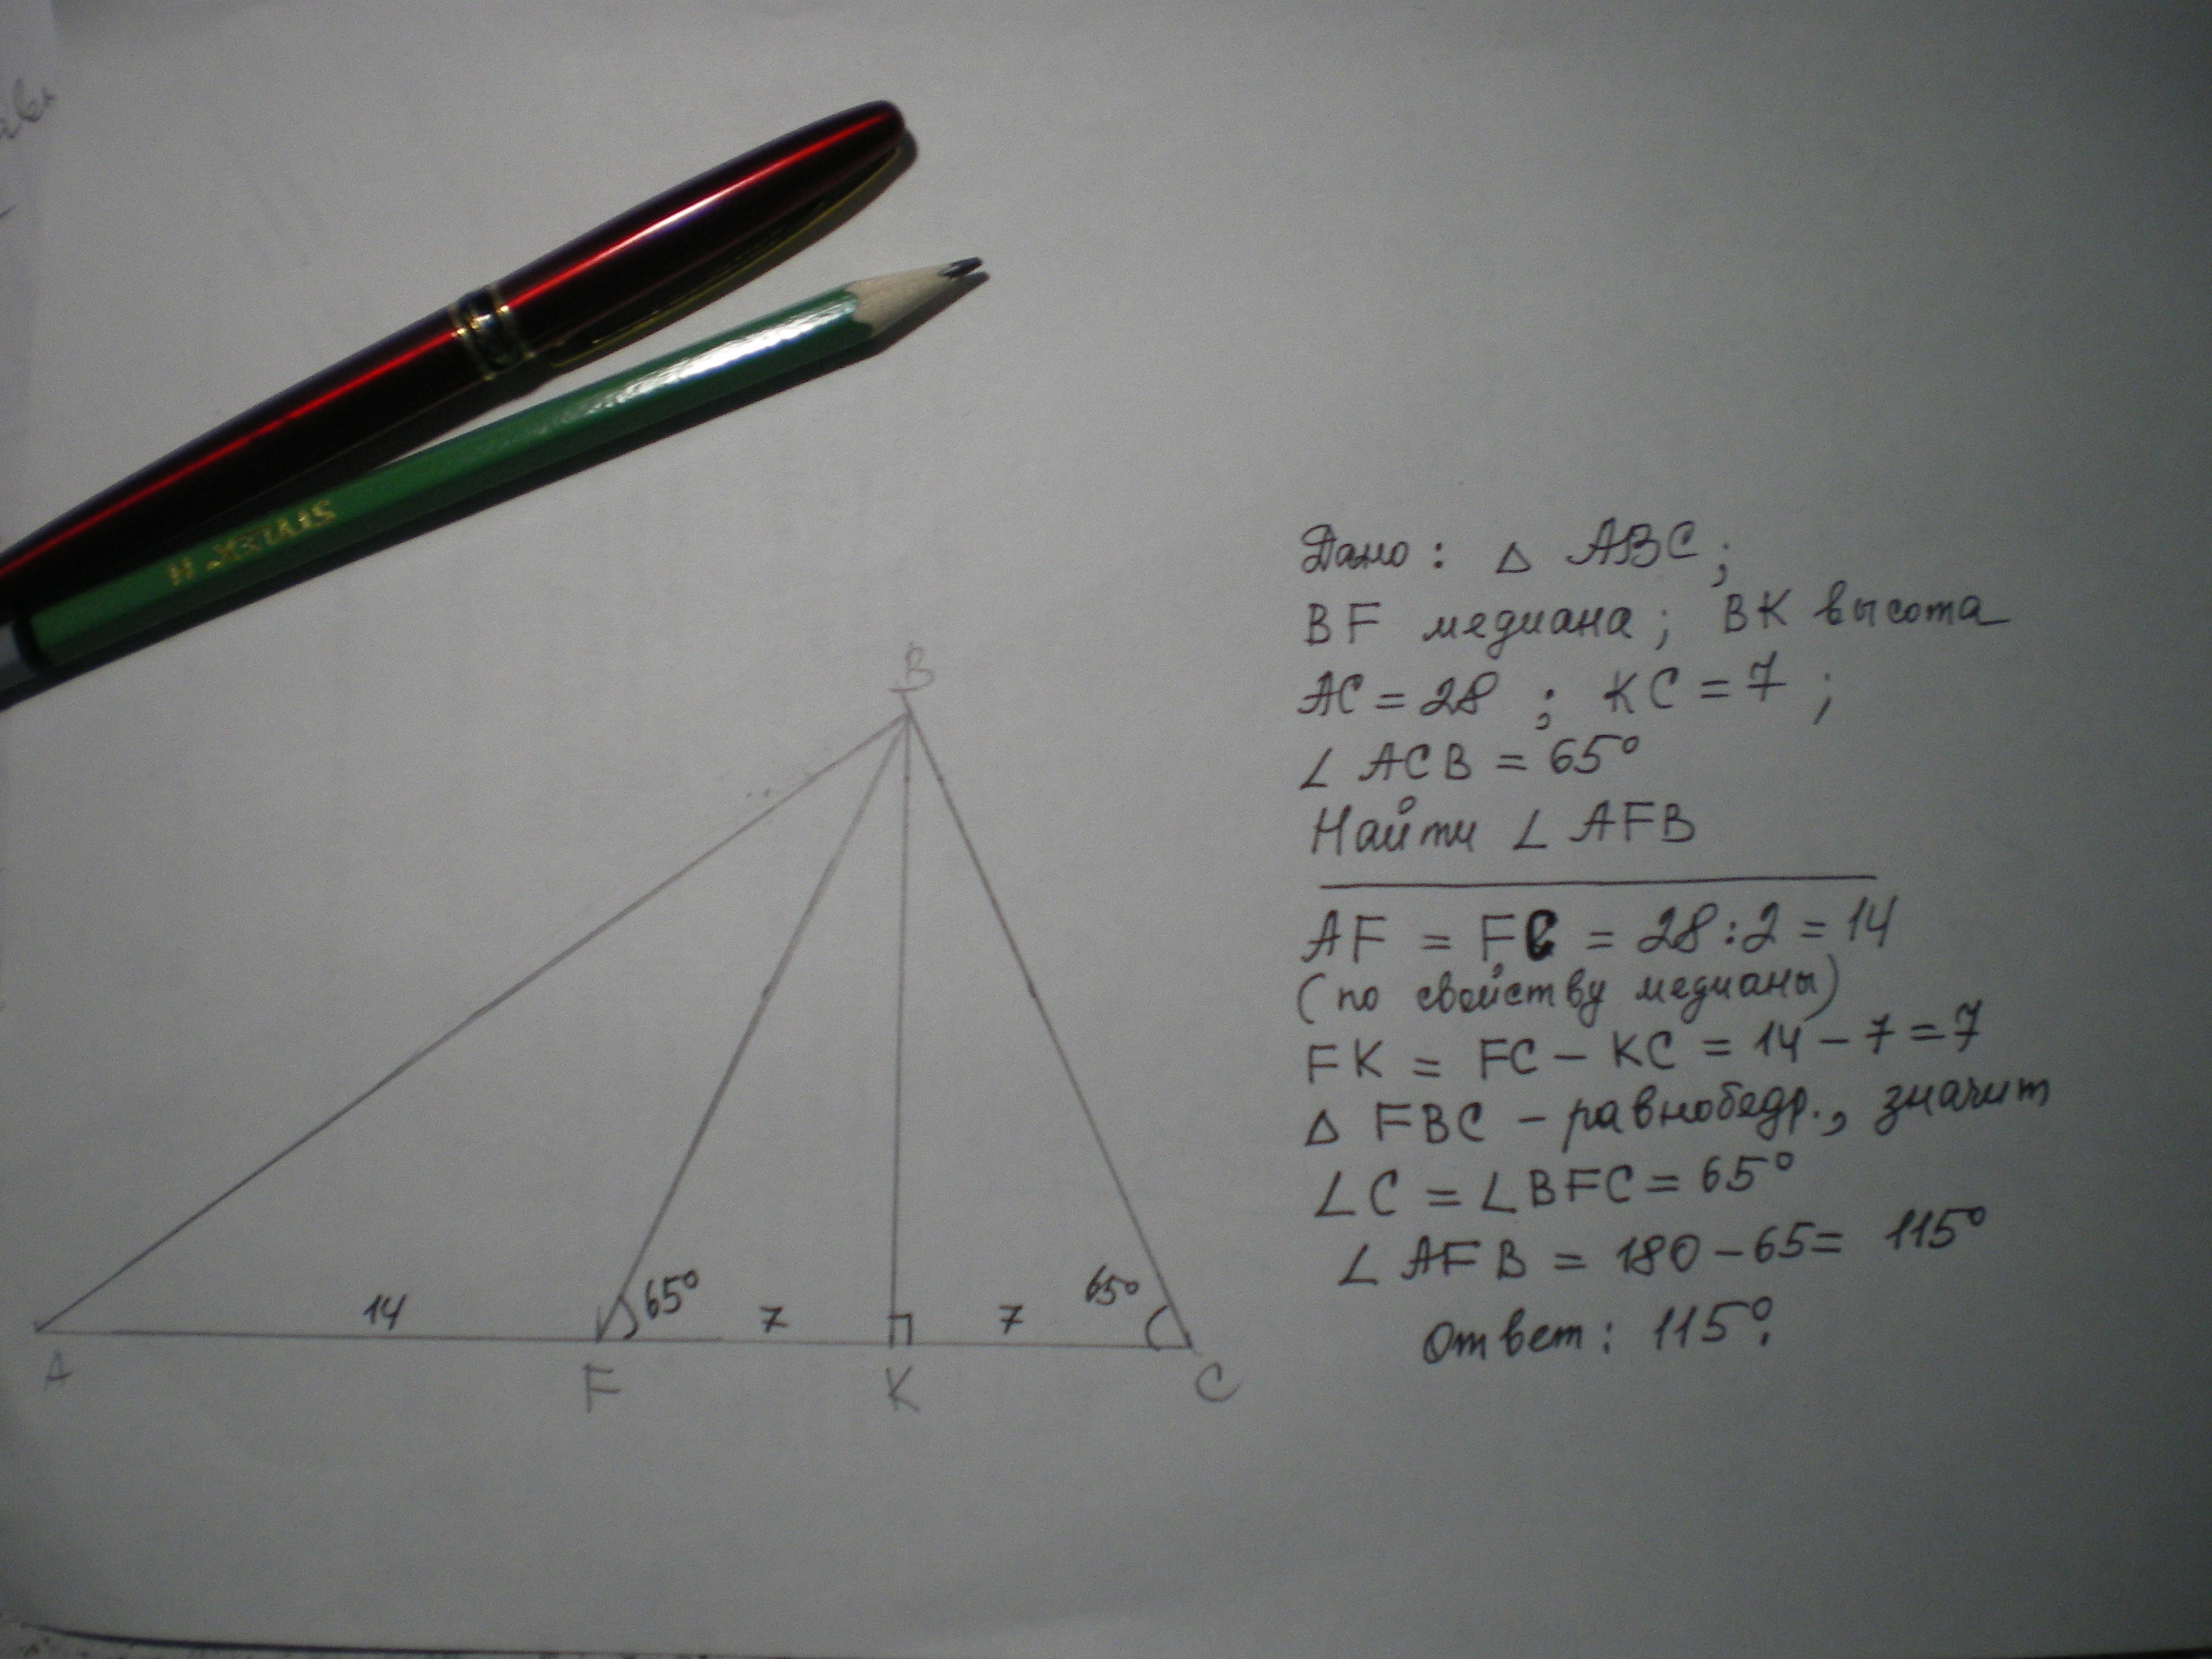 STYLEX H
B
Дано: △ ABC;
BF медиана; BK высота
AC = 28 ; KC = 7 ;
∠ ACB = 65°
Найти ∠ AFB
AF = FC = 28 : 2 = 14
(по свойству медианы)
FK = FC – KC = 14 – 7 = 7
△ FBC – равнобедр., значит
∠ C = ∠ BFC = 65°
∠ AFB = 180 – 65 = 115°
Ответ: 115°.
14 65° 7 7 65°
A F K C